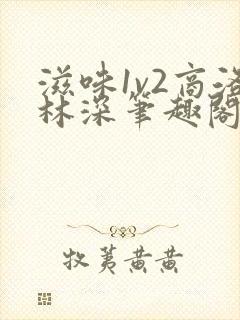 滋味1v2高洛
林深笔趣阁
牧荑黄黄